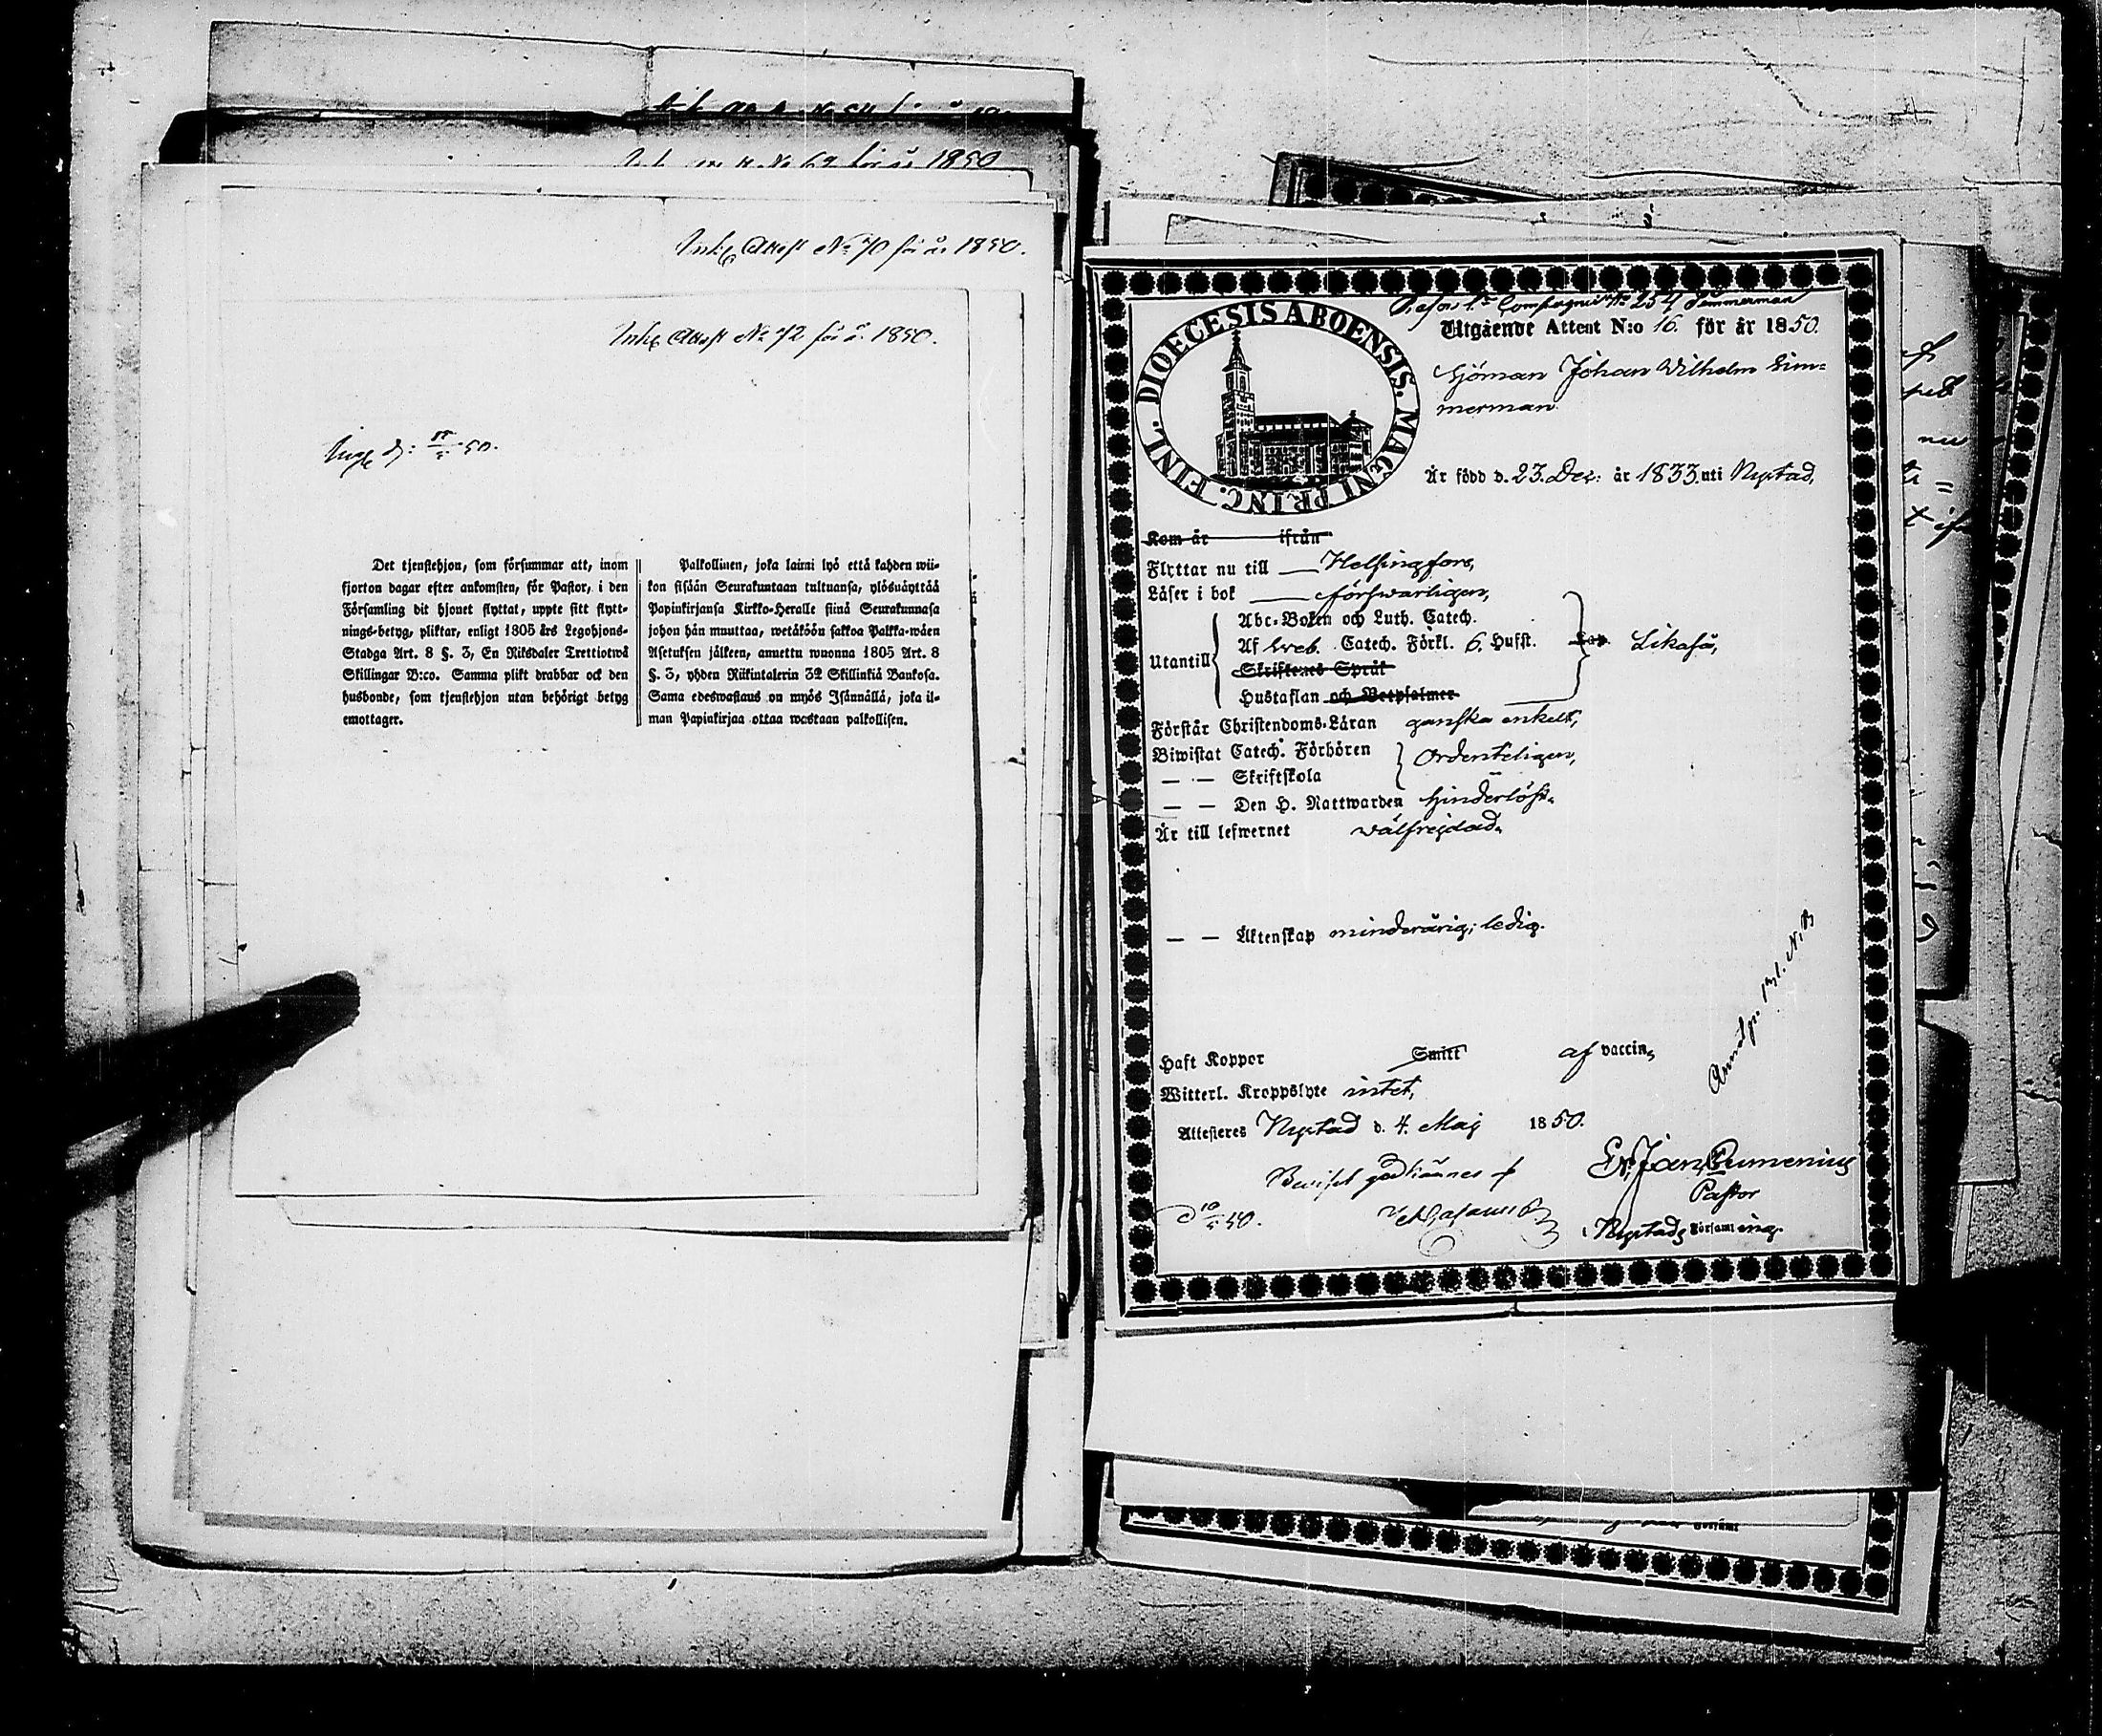 för år 1850
Ink. Attest No 70 för år 1850.
Ink. Attest No 72 för å. 1850.
50.
Det tjenstehjon, som försummar att, inom
fjorton dagar efter ankomsten, för Pastor, i den
Församling dit hjonet flyttat, uppte sitt flytt-
nings-betyg, pliktar, enligt 1805 års Legohjons-
Stadga Art. 8 §. 3, En Riksdaler Trettiotwå
Skillingar B:co. Samma plikt drabbar ock den
husbonde, som tjenstehjon utan behörigt betyg
emottager.
Palkollinen, joka laimi lyö että kahden wii-
kon sisään Seurakuntaan tultuansa, ylösnäyttää
Papinkirjansa Kirkko-Heralle siinä Seurakunnasa
johon hän muuttaa, wetäköön sakkoa Palkka-wäen
Asetuksen jälkeen, annettu wuonna 1805 Art. 8
§. 3, yhden Riikintalerin 32 Skillinkiä Bankosa.
Sama edeswastaus on myös Isännällä, joka il-
man Papinkirjaa ottaa wastaan palkollisen.
Compagniet No 254 Simmerman
DIOECESIS ABOENSIS. MAGNI PRINC. FINL.
Utgående Attest N:o 16. för år 1850.
Sjöman Johan Wilhelm Sim=
merman
Är född d. 23. Dec: år 1833. uti Nystad,
Kom år ifrån
Flyttar nu till Helsingfors,
Läser i bok försvarligen,
Utantill
Abc-Boken och Luth. Catech.
Af Sveb. Catech. Förkl. 6. Hufst. Cap. Likaså,
Skriftenes Språk
Hustaflan och Botpsalmer
Förstår Christendoms-Läran ganska enkelt,
Biwistat Catech. Förhören Ordenteligen,
— — Skriftskola
— — Den H. Nattwarden hinderlöst.
Är till lefwernet välfrejdad.
— — Äktenskap minderårig; ledig.
Haft Koppor Smitt af vaccin,
Witterl. Kroppslyte intet,
Attesteres Nystad d. 4. Maj 1850.
Gr. Joh. Cumenius
Pastor
Nystads Församling.
Beviset godkännes af
d 10/5 50.